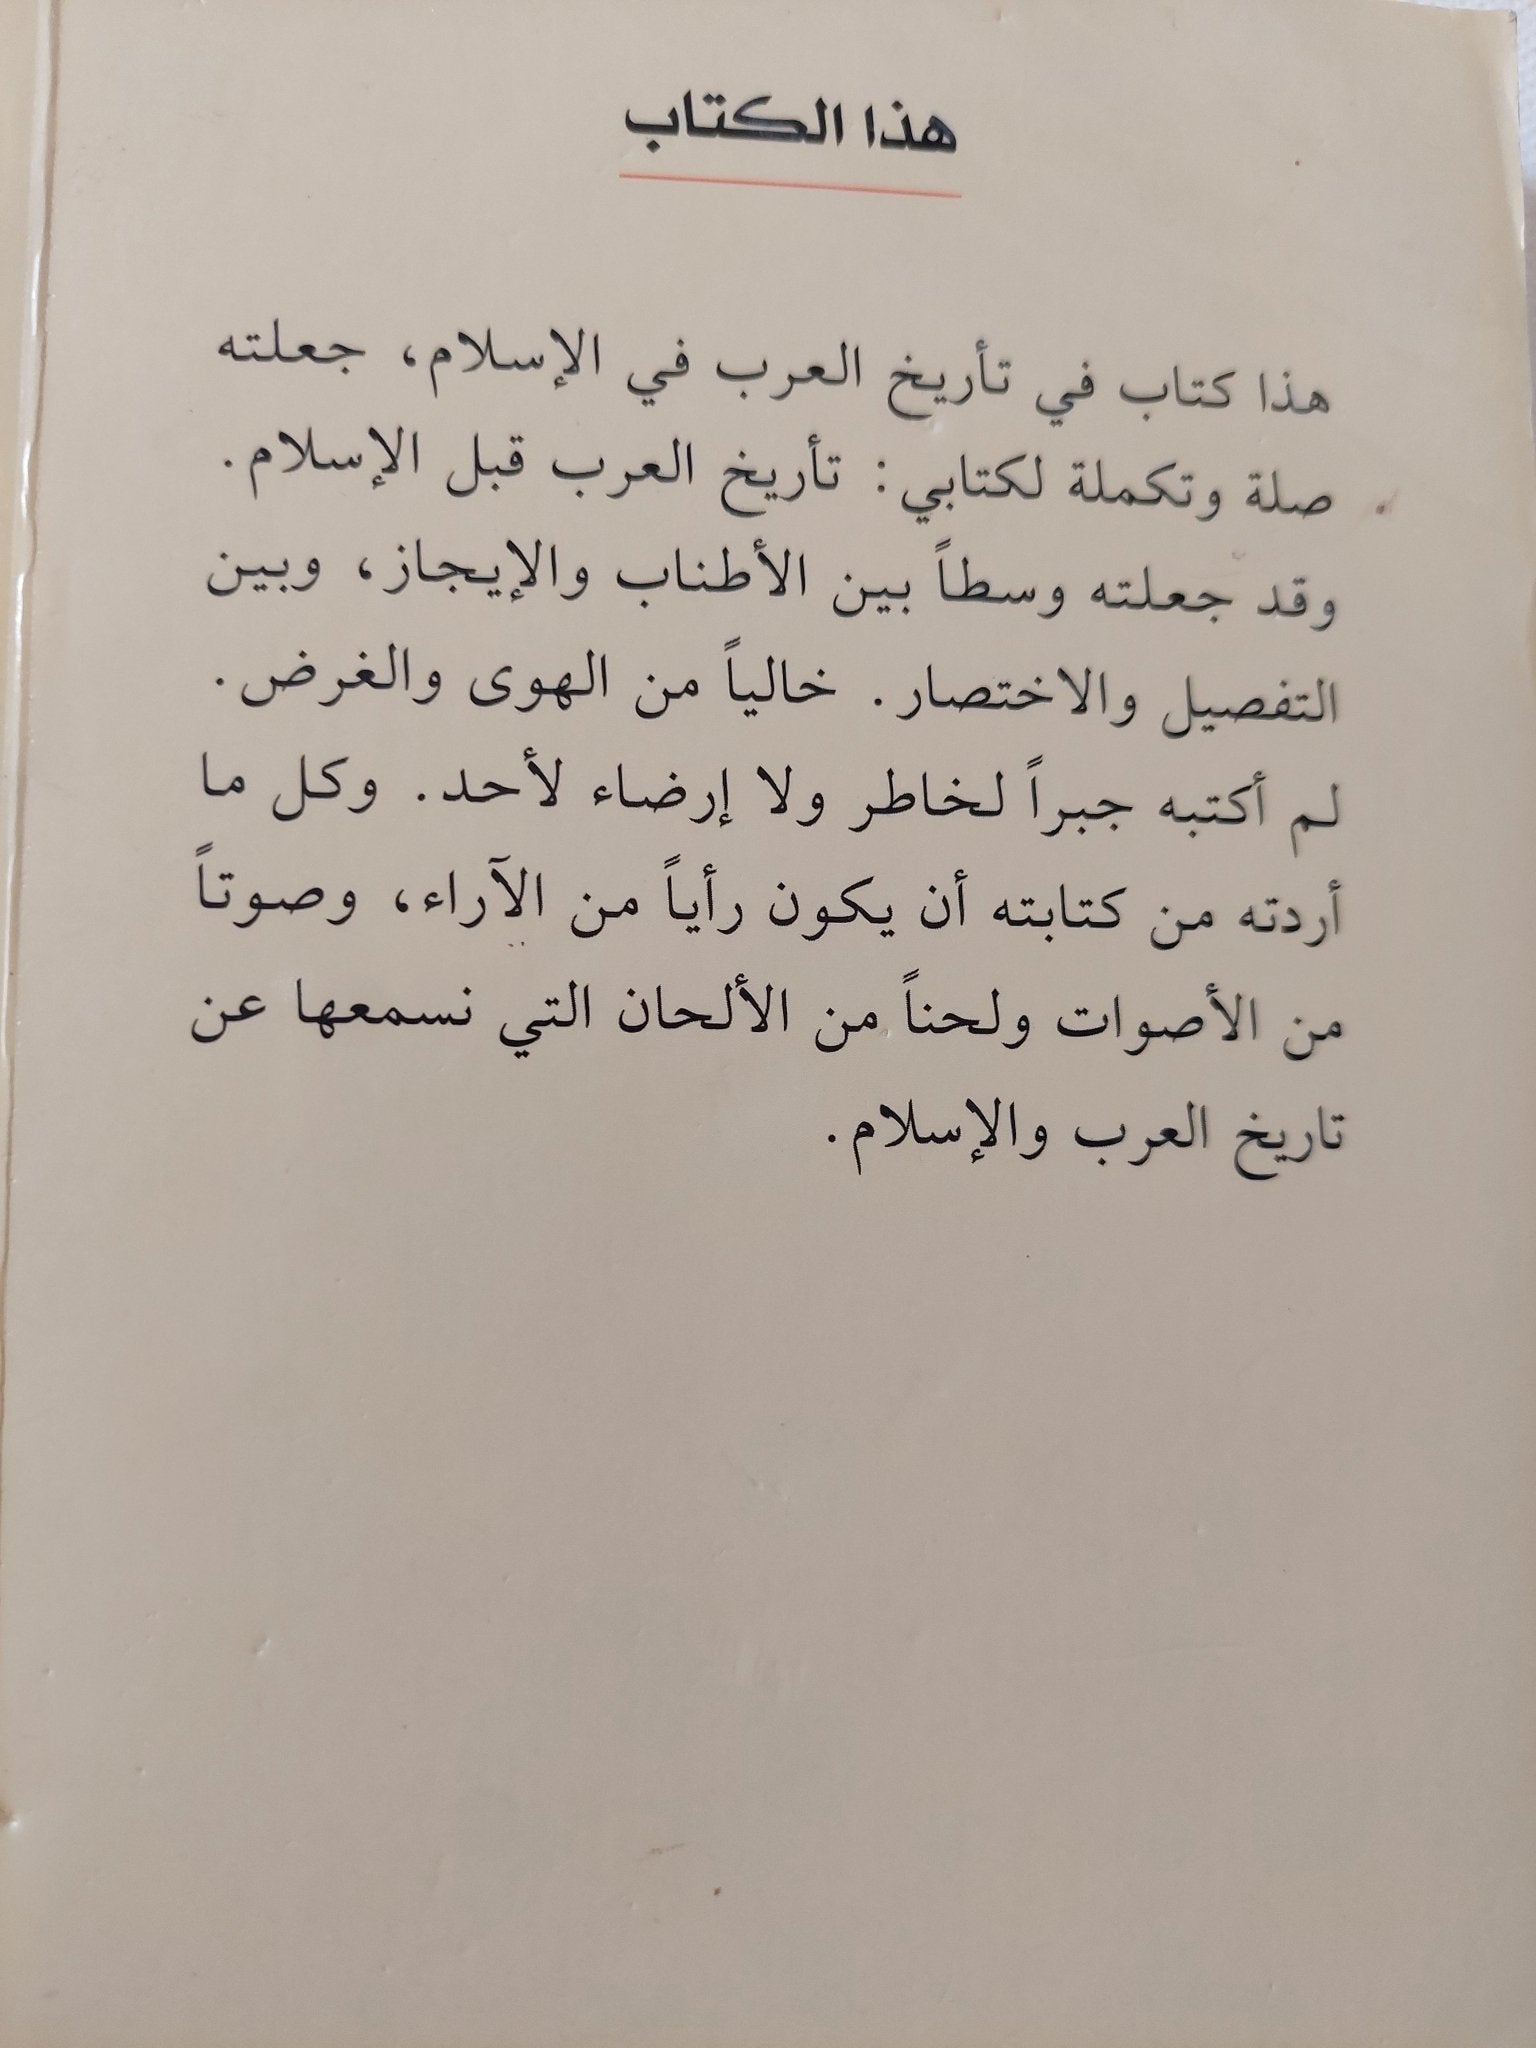 هذا الكتاب
هذا كتاب في تأريخ العرب في الإسلام، جعلته
صلة وتكملة لكتابي: تأريخ العرب قبل الإسلام.
وقد جعلته وسطاً بين الأطناب والإيجاز، وبين
التفصيل والاختصار. خالياً من الهوى والغرض.
لم أكتبه جبراً لخاطر ولا إرضاء لأحد. وكل ما
أردته من كتابته أن يكون رأياً من الآراء، وصوتاً
من الأصوات ولحناً من الألحان التي نسمعها عن
تاريخ العرب والإسلام.